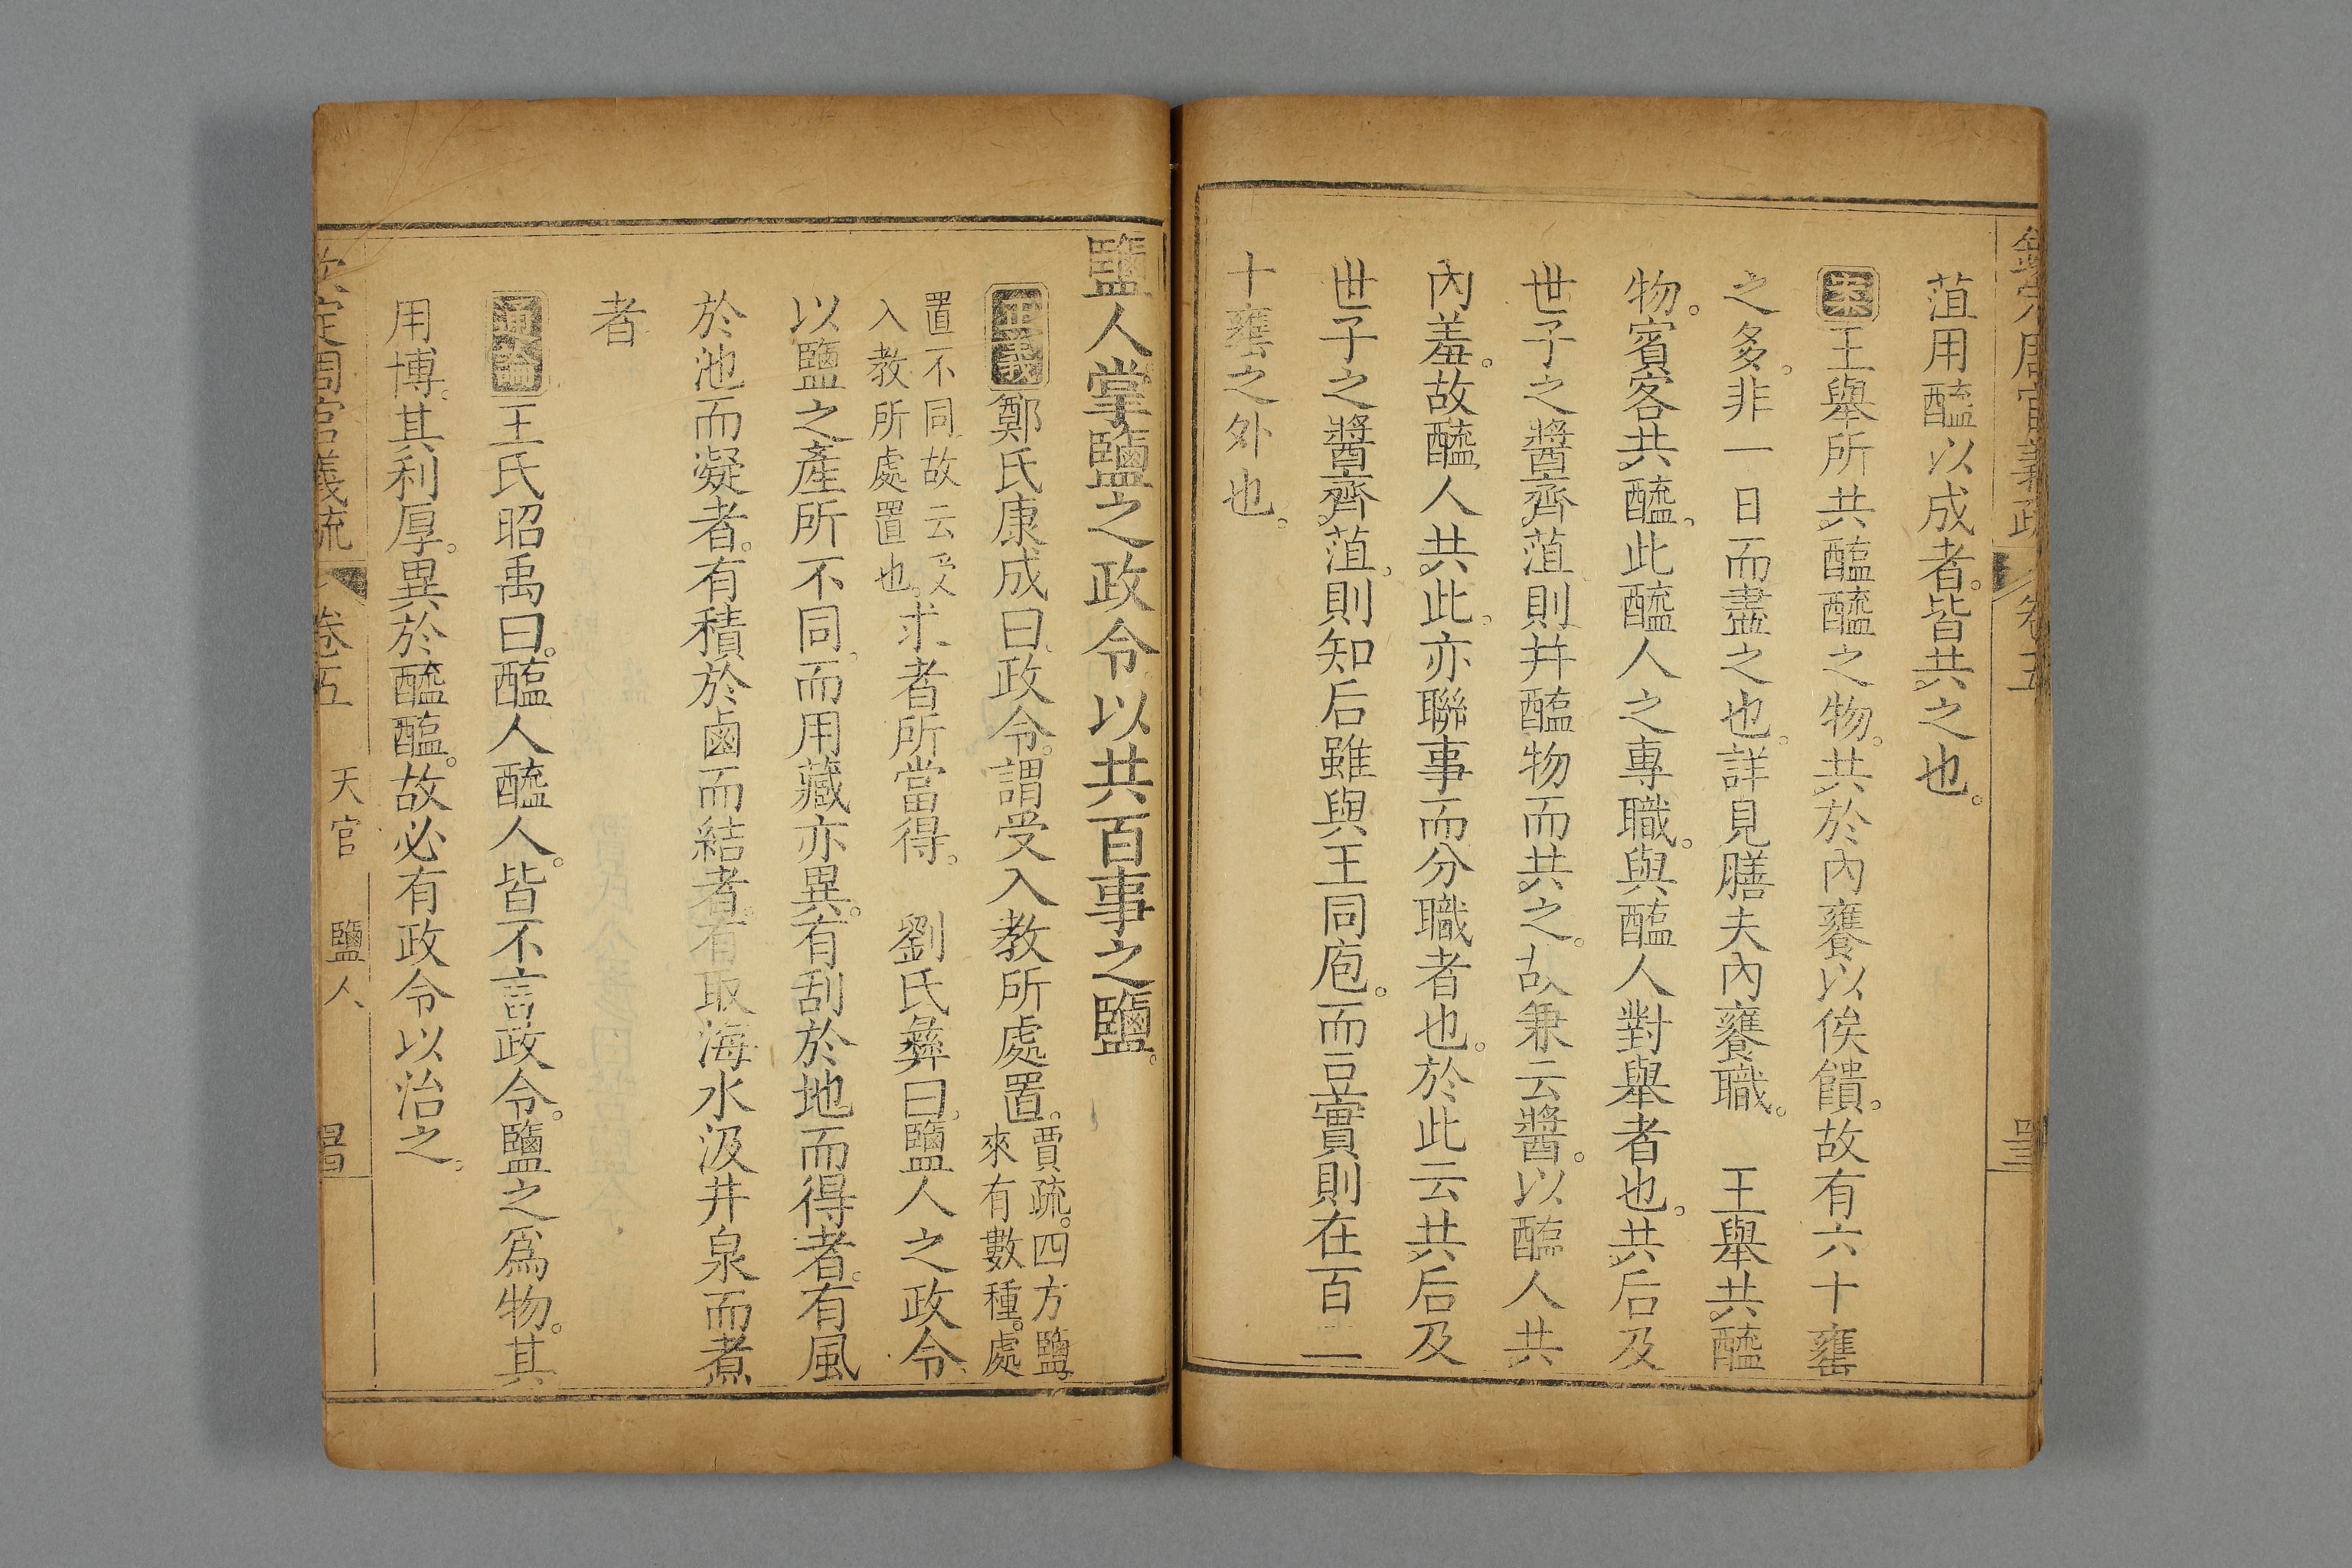 欽定周官義疏 卷五
菹用醯以成者。皆共之也。
案王舉所共醢醯之物。共於內饔以俟饋。故有六十罋
之多。非一日而盡之也。詳見膳夫內饔職。 王舉共醯
物。賓客共醯。此醯人之專職。與醢人對舉者也。共后及
世子之醬齊菹則幷醢物而共之。故兼云醬。以醢人共
內羞。故醯人共此。亦聯事而分職者也。於此云共后及
世子之醬齊菹。則知后雖與王同庖。而豆實則在百二
十罋之外也。
鹽人掌鹽之政令以共百事之鹽。
正義鄭氏康成曰。政令。謂受入教所處置。賈疏。四方鹽。來有數種。處
置不同。故云受入教所處置也。求者所當得。 劉氏彝曰。鹽人之政令。
以鹽之產所不同。而用藏亦異。有刮於地而得者。有風
於池而凝者。有積於鹵而結者。有取海水汲井泉而煮
者
通論王氏昭禹曰。醢人醯人。皆不言政令。鹽之爲物。其
用博。其利厚。異於醯醢。故必有政令以治之。
欽定周官義疏 卷五 天官 鹽人